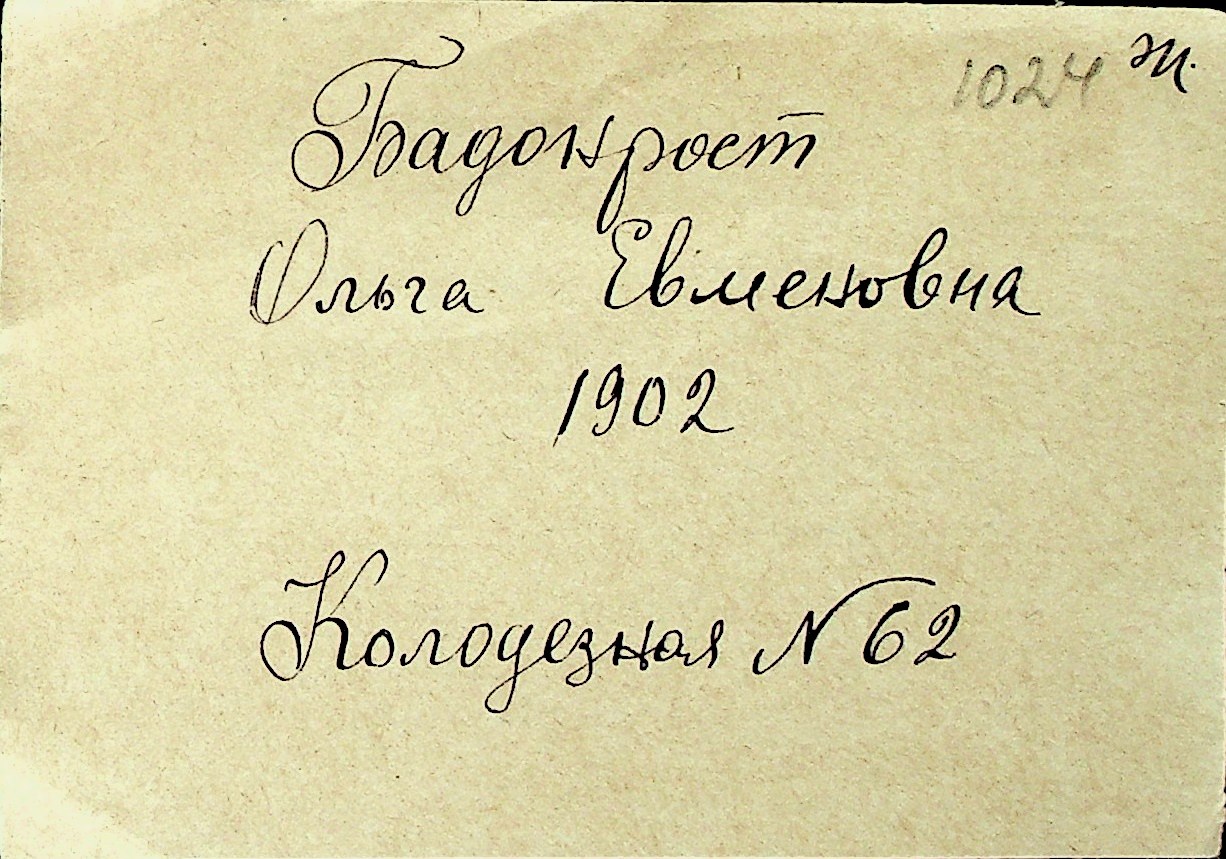 1024 т.
Бадонрост
Ольга Евменовна
1902
Колодезная N 62